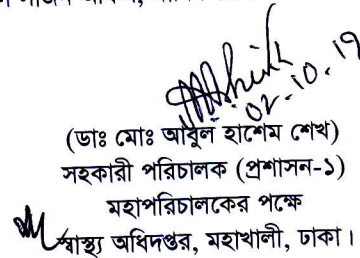 ০৮.১০.১৭
(ডাঃ মোঃ আবুল হাশেম শেখ)
সহকারী পরিচালক (প্রশাসন-১)
মহাপরিচালকের পক্ষে
স্বাস্থ্য অধিদপ্তর, মহাখালী, ঢাকা।